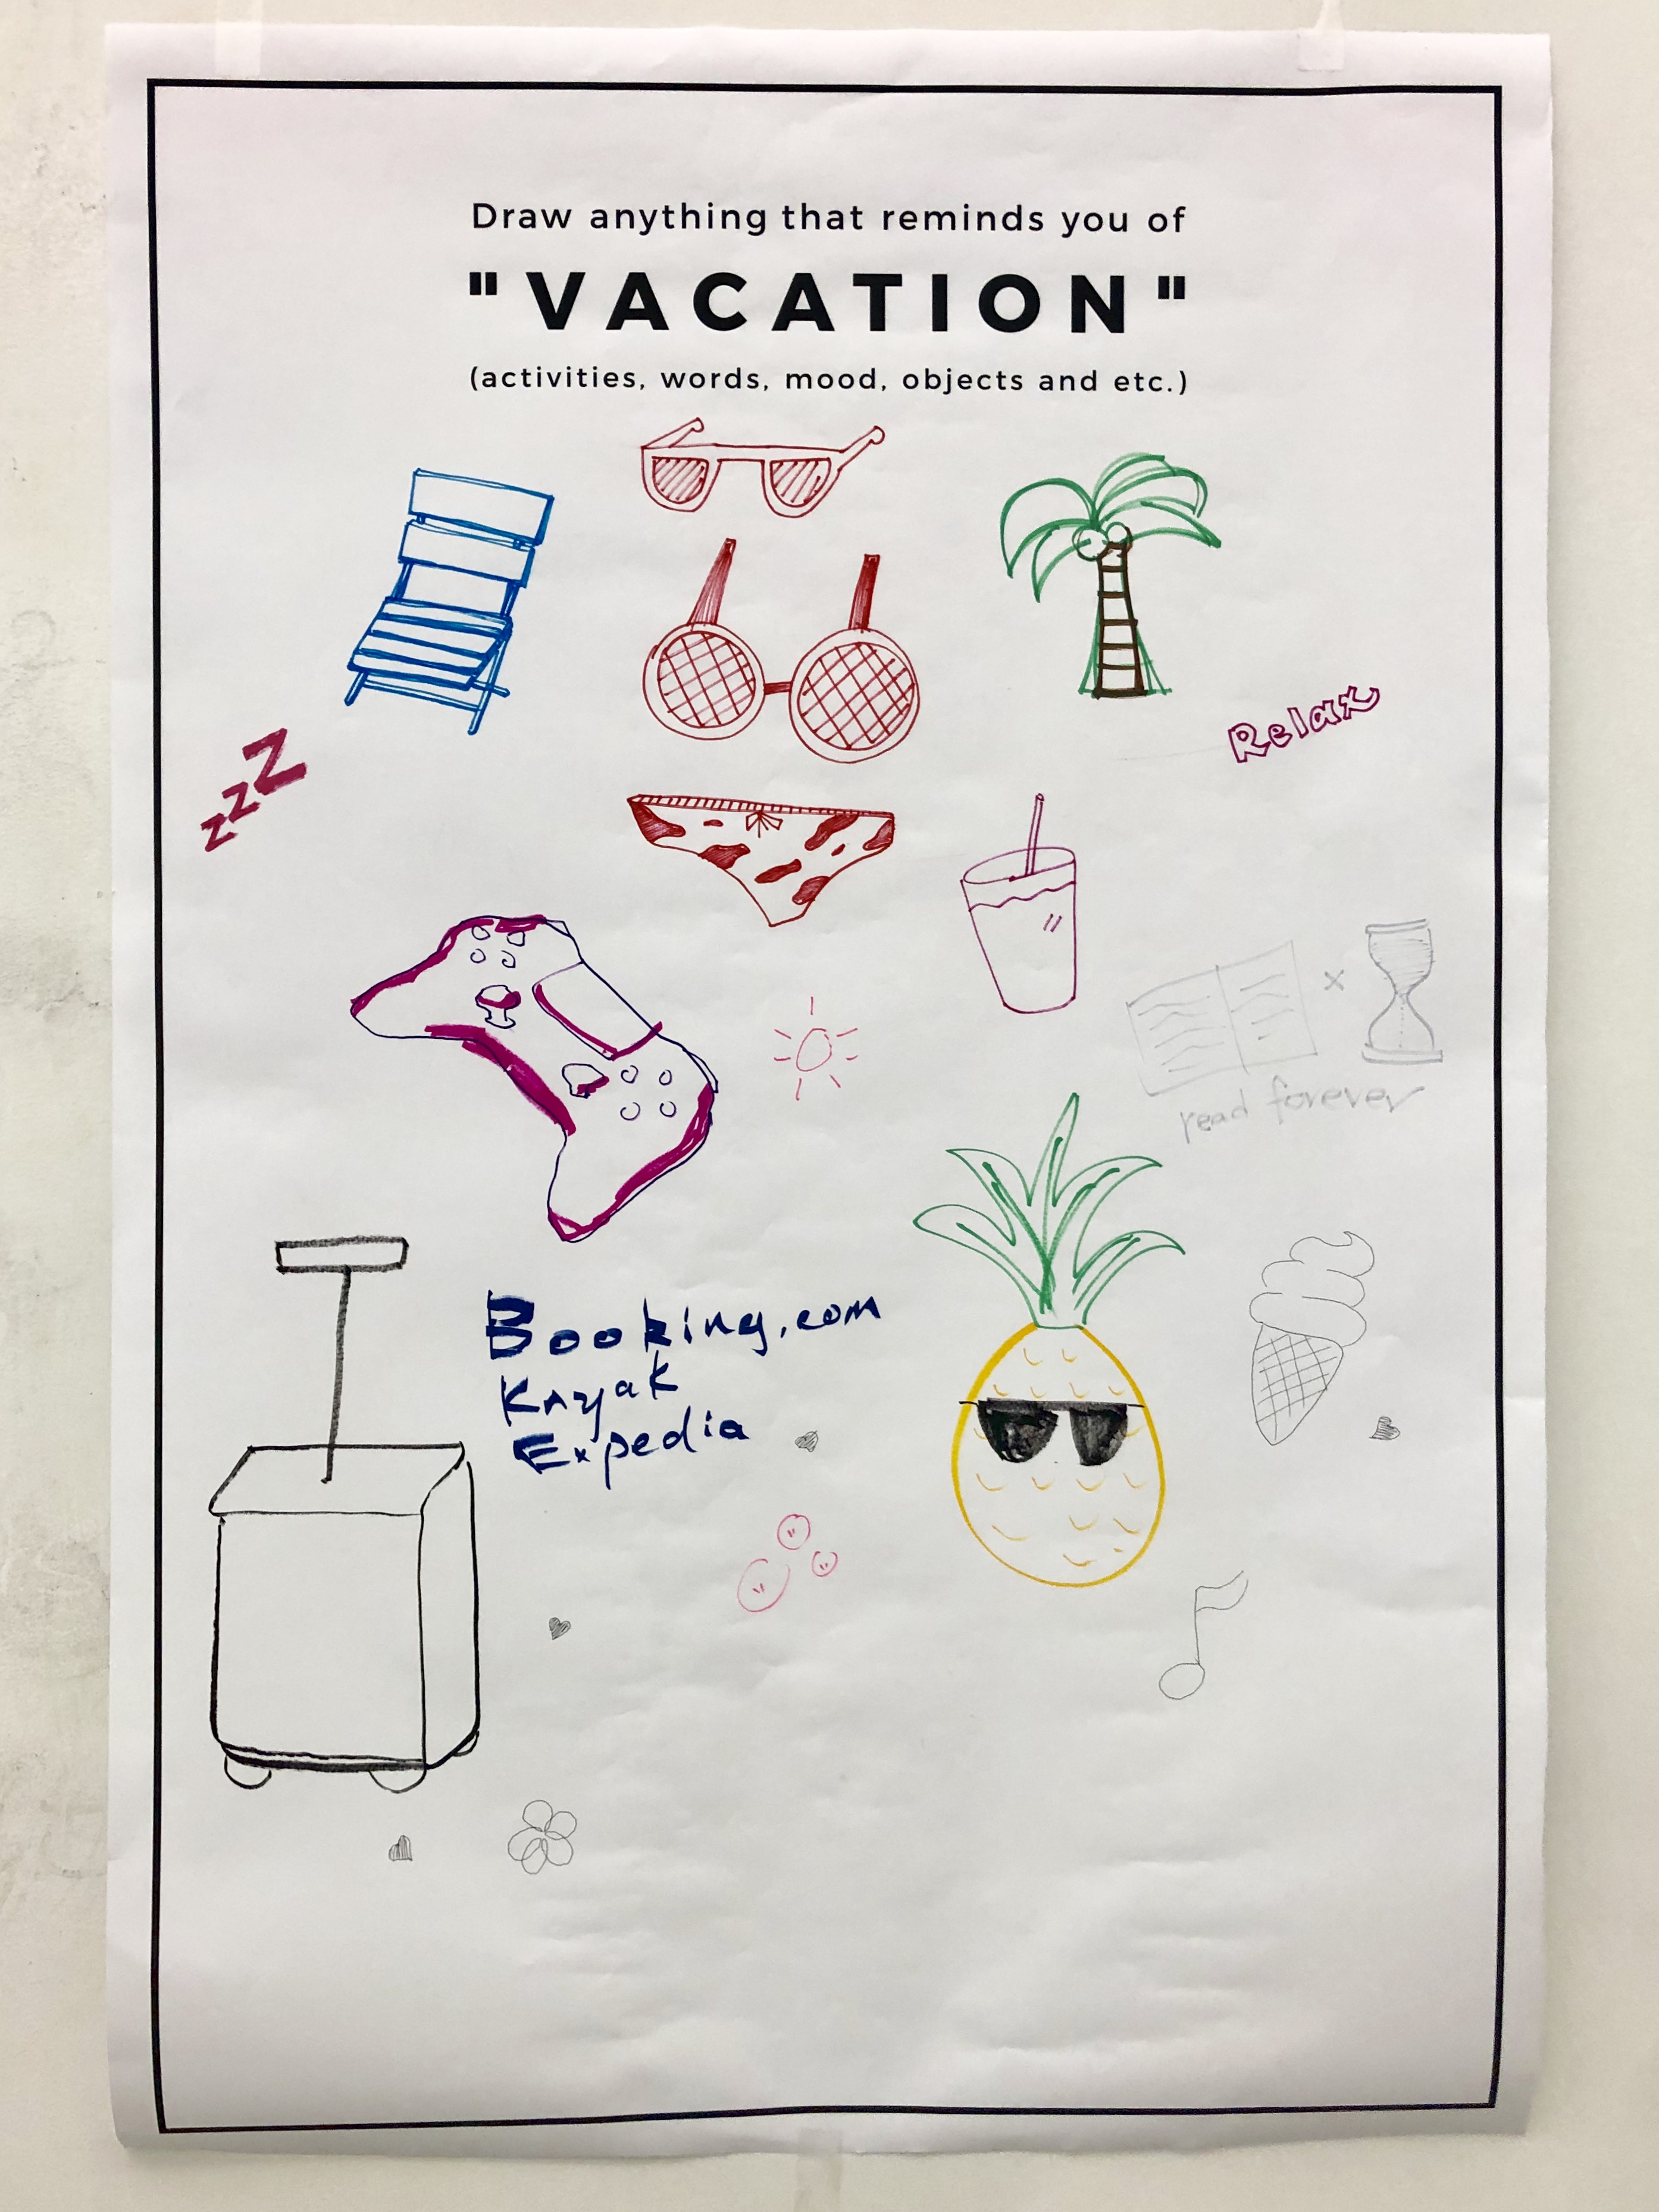 Draw anything that reminds you of
"VACATION"
(activities, words, mood, objects and etc.)
Relax
zzZ
x
read forever
Booking.com
Kayak
Expedia